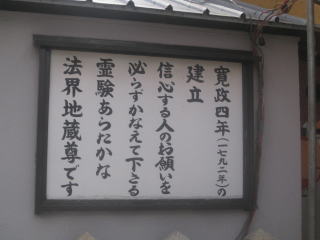 寛政四年(一七九二年)の
建立
信心する人のお願いを
必らずかなえて下さる
霊験あらたかな
法界地蔵尊です